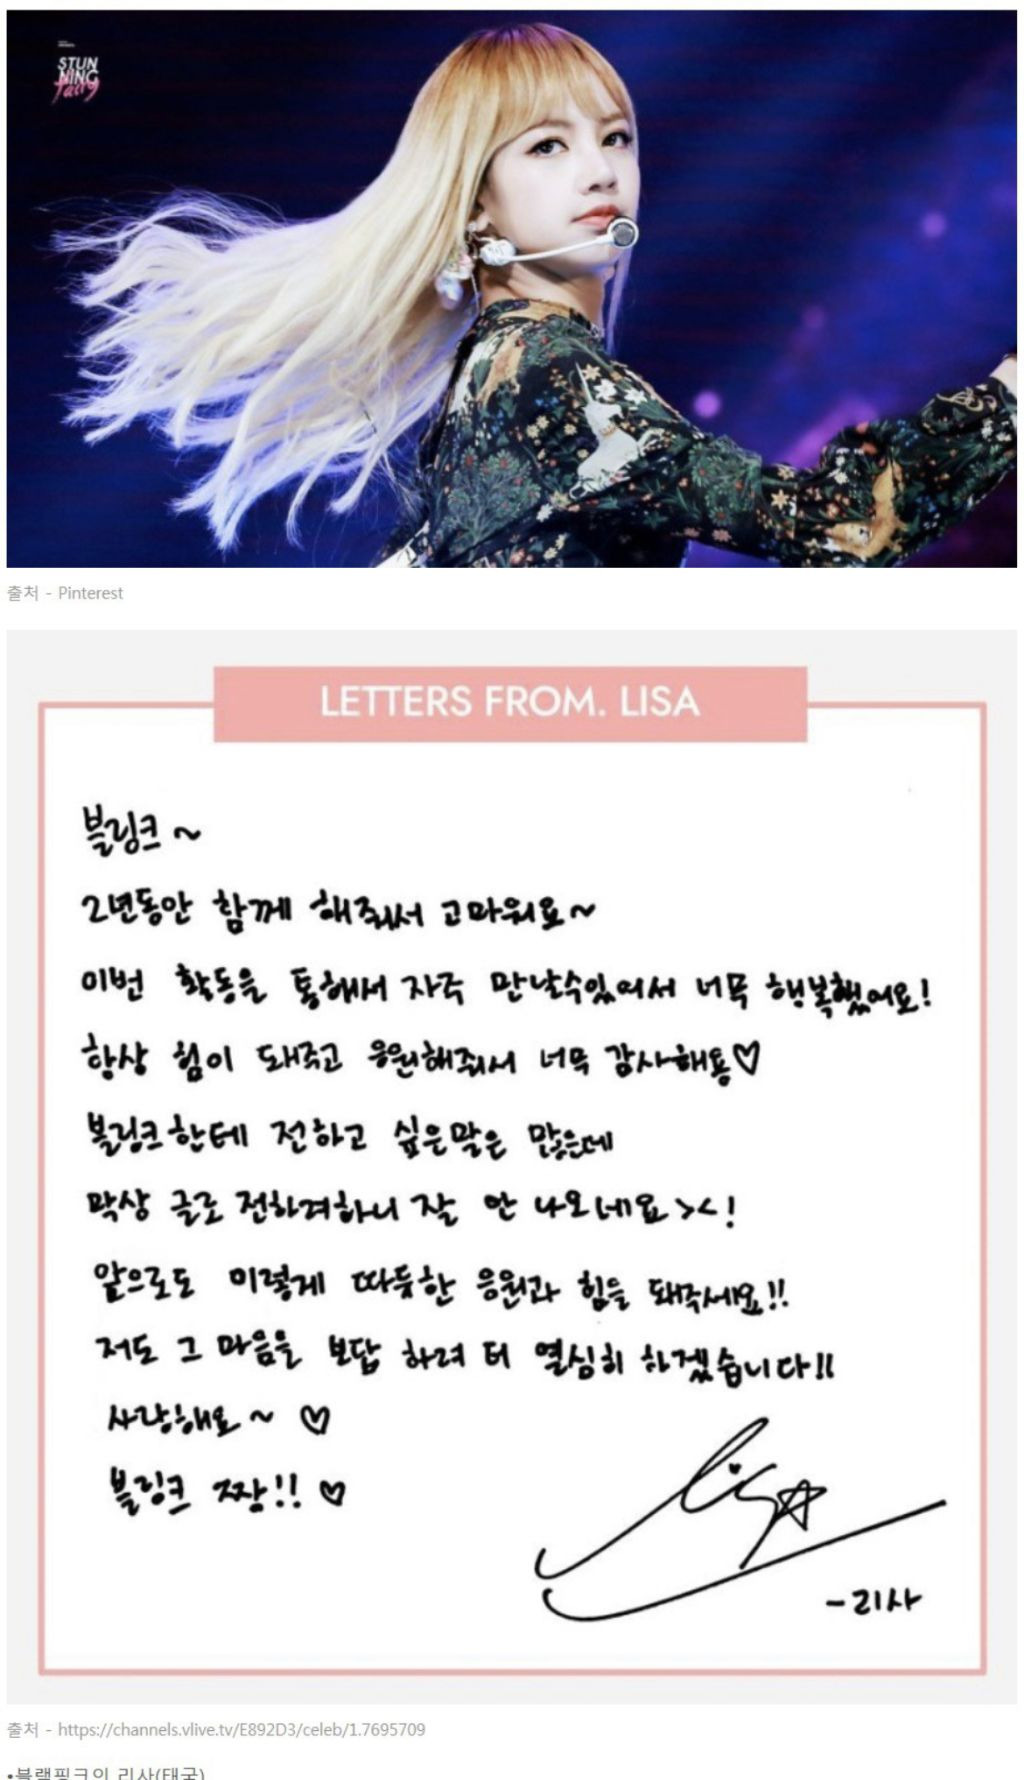 STUN
NING
출처 - Pinterest
LETTERS FROM. LISA
블링크 ~
2년동안 함께 해줘서 고마워요~
이번 활동을 통해서 자주 만날수있어서 너무 행복했어요!
항상 힘이 돼주고 응원해줘서 너무 감사해용♡
블링크한테 전하고 싶은말은 많은데
막상 글로 전하려하니 잘 안 나오네요 ><!
앞으로도 이렇게 따듯한 응원과 힘들 돼주세요!!
저도 그 마음을 보답 하려 더 열심히 하겠습니다!!
사랑해요~ ♡
블링크 짱!! ♡
Lisa
-리사
출처 - https://channels.vlive.tv/E892D3/celeb/1.7695709
•블랙핑크의 리사(태국)